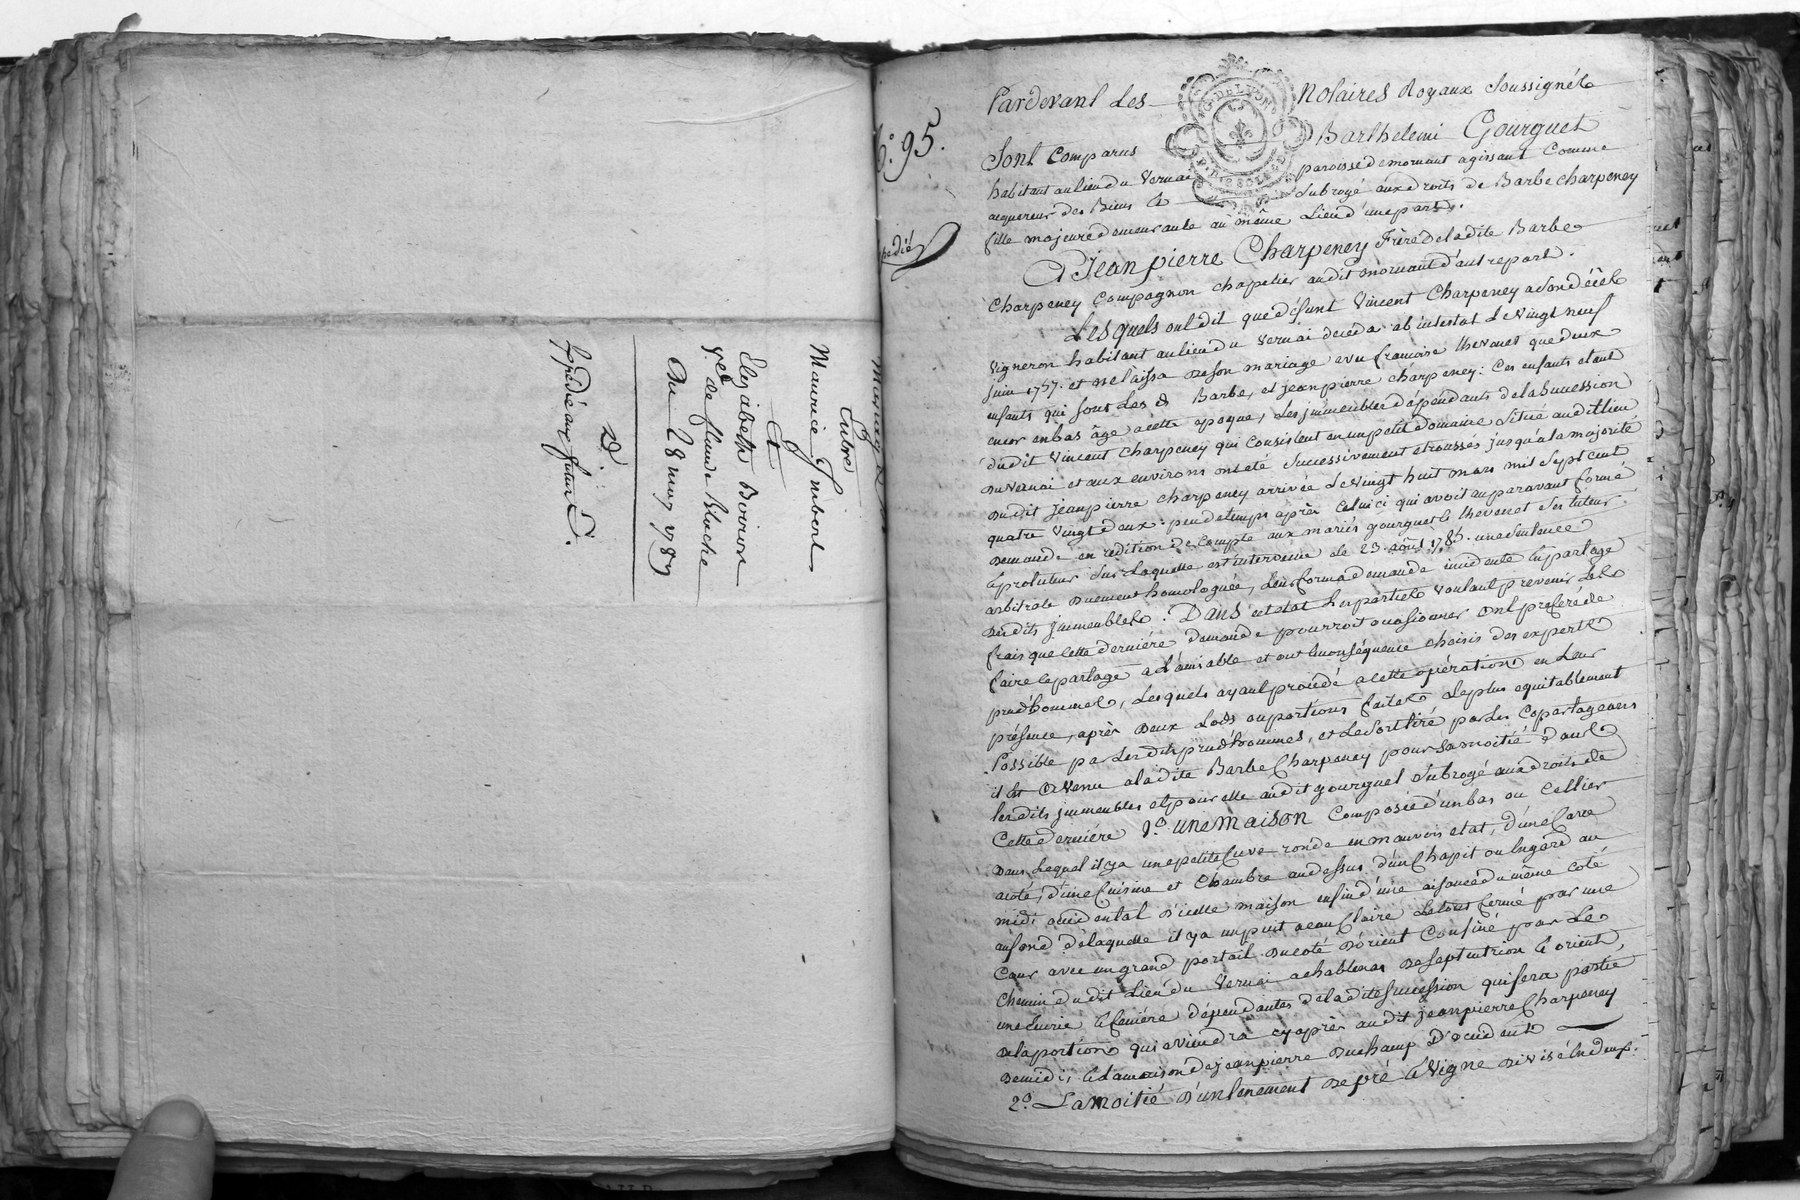 Mariage
Entre
Maurice Imbert
Et
Elizabeth Boiron
v.e de fleurie Bloche
Du 28 may 1789
D.
Expédié aux futurs
N.o 95.
Expedié
G. DE LYON
Pardevant Les Notaires Royaux Soussignés
Sont Comparus Barthelemi Gourguet
habitant au lieu du Vernai paroisse de mornant agissant Comme
acquereur des Biens et Subrogé aux droits de Barbe Charpeney
fille majeure demeurante au même Lieu d'une part.
Et Jean pierre Charpeney Frère de ladite Barbe
Charpeney Compagnon chapelier audit mornant d'autre part.
Lesquels ont dit que défunt Vincent Charpeney a son décès
Vigneron habitant au lieu du Vernai deceda ab intestat Le vingt neuf
Juin 1757. et ne laissa de son mariage avec francoise thevenet que deux
enfants qui sont Les d. Barbe, et jean pierre charpeney: Ces enfants etant
encor en bas âge a cette epoque, Les immeubles dépendants de la Succession
dudit Vincent Charpeney qui Consistent en un petit domaine Situé audit lieu
du Vernai et aux environs ont eté Successivement et jusqu'a la majorité
dudit jean pierre charpeney arrivée Le vingt huit mars mil Sept cent
quatre Vingt deux: peu de temps après Celui ci qui avoit auparavant formé
demande en redition de Compte aux mariés gourguet et thevenet Ses tuteur
et protuteur Sur Laquelle est intervenue le 23. août 1785. une Sentence
arbitrale duement homologuée, Leur forma demande incidente en partage
desdits immeubles. Dans cet etat Les parties voulant prevenir Les
frais que Cette derniére demande pourroit occasionner ont preferé de
faire le partage a L'amiable et ont en conséquence choisis des experts
prud'hommes, Lesquels ayant procédé a cette opération en Leur
présence, après deux Lots ou portions faites Le plus equitablement
Possible par Lesdits prud'hommes, et Le sort tiré par Les Copartageans
il est avenu a ladite Barbe Charpeney pour Sa moitié dans
lesdits immeubles et pour elle audit gourguet Subrogé aux droits de
Cette derniére 1.o une maison Composée d'un bas ou Cellier
dans Lequel il y a une petite Cuve ronde en mauvois etat, d'une Cave
a coté, d'une Cuisine et Chambre au dessus d'un Chapit ou hagard au
midi occidental d'icelle maison enfin d'une aisance du même coté
au fond de laquelle il y a un puit a eau Claire Le tout fermé par une
Cour avec un grand portail du coté d'orient Confiné par Le
Chemin dudit Lieu du Vernai a chablenas de Septentrion et orient,
une écurie et feniére dépendantes de la dite Succession qui fera partie
de la portion qui aviendra cy après audit jean pierre Charpeney
de midi, et la maison de jean pierre Duchamp d'occident
2.o La moitié d'un tenement de pré et Vigne divisé en deux.